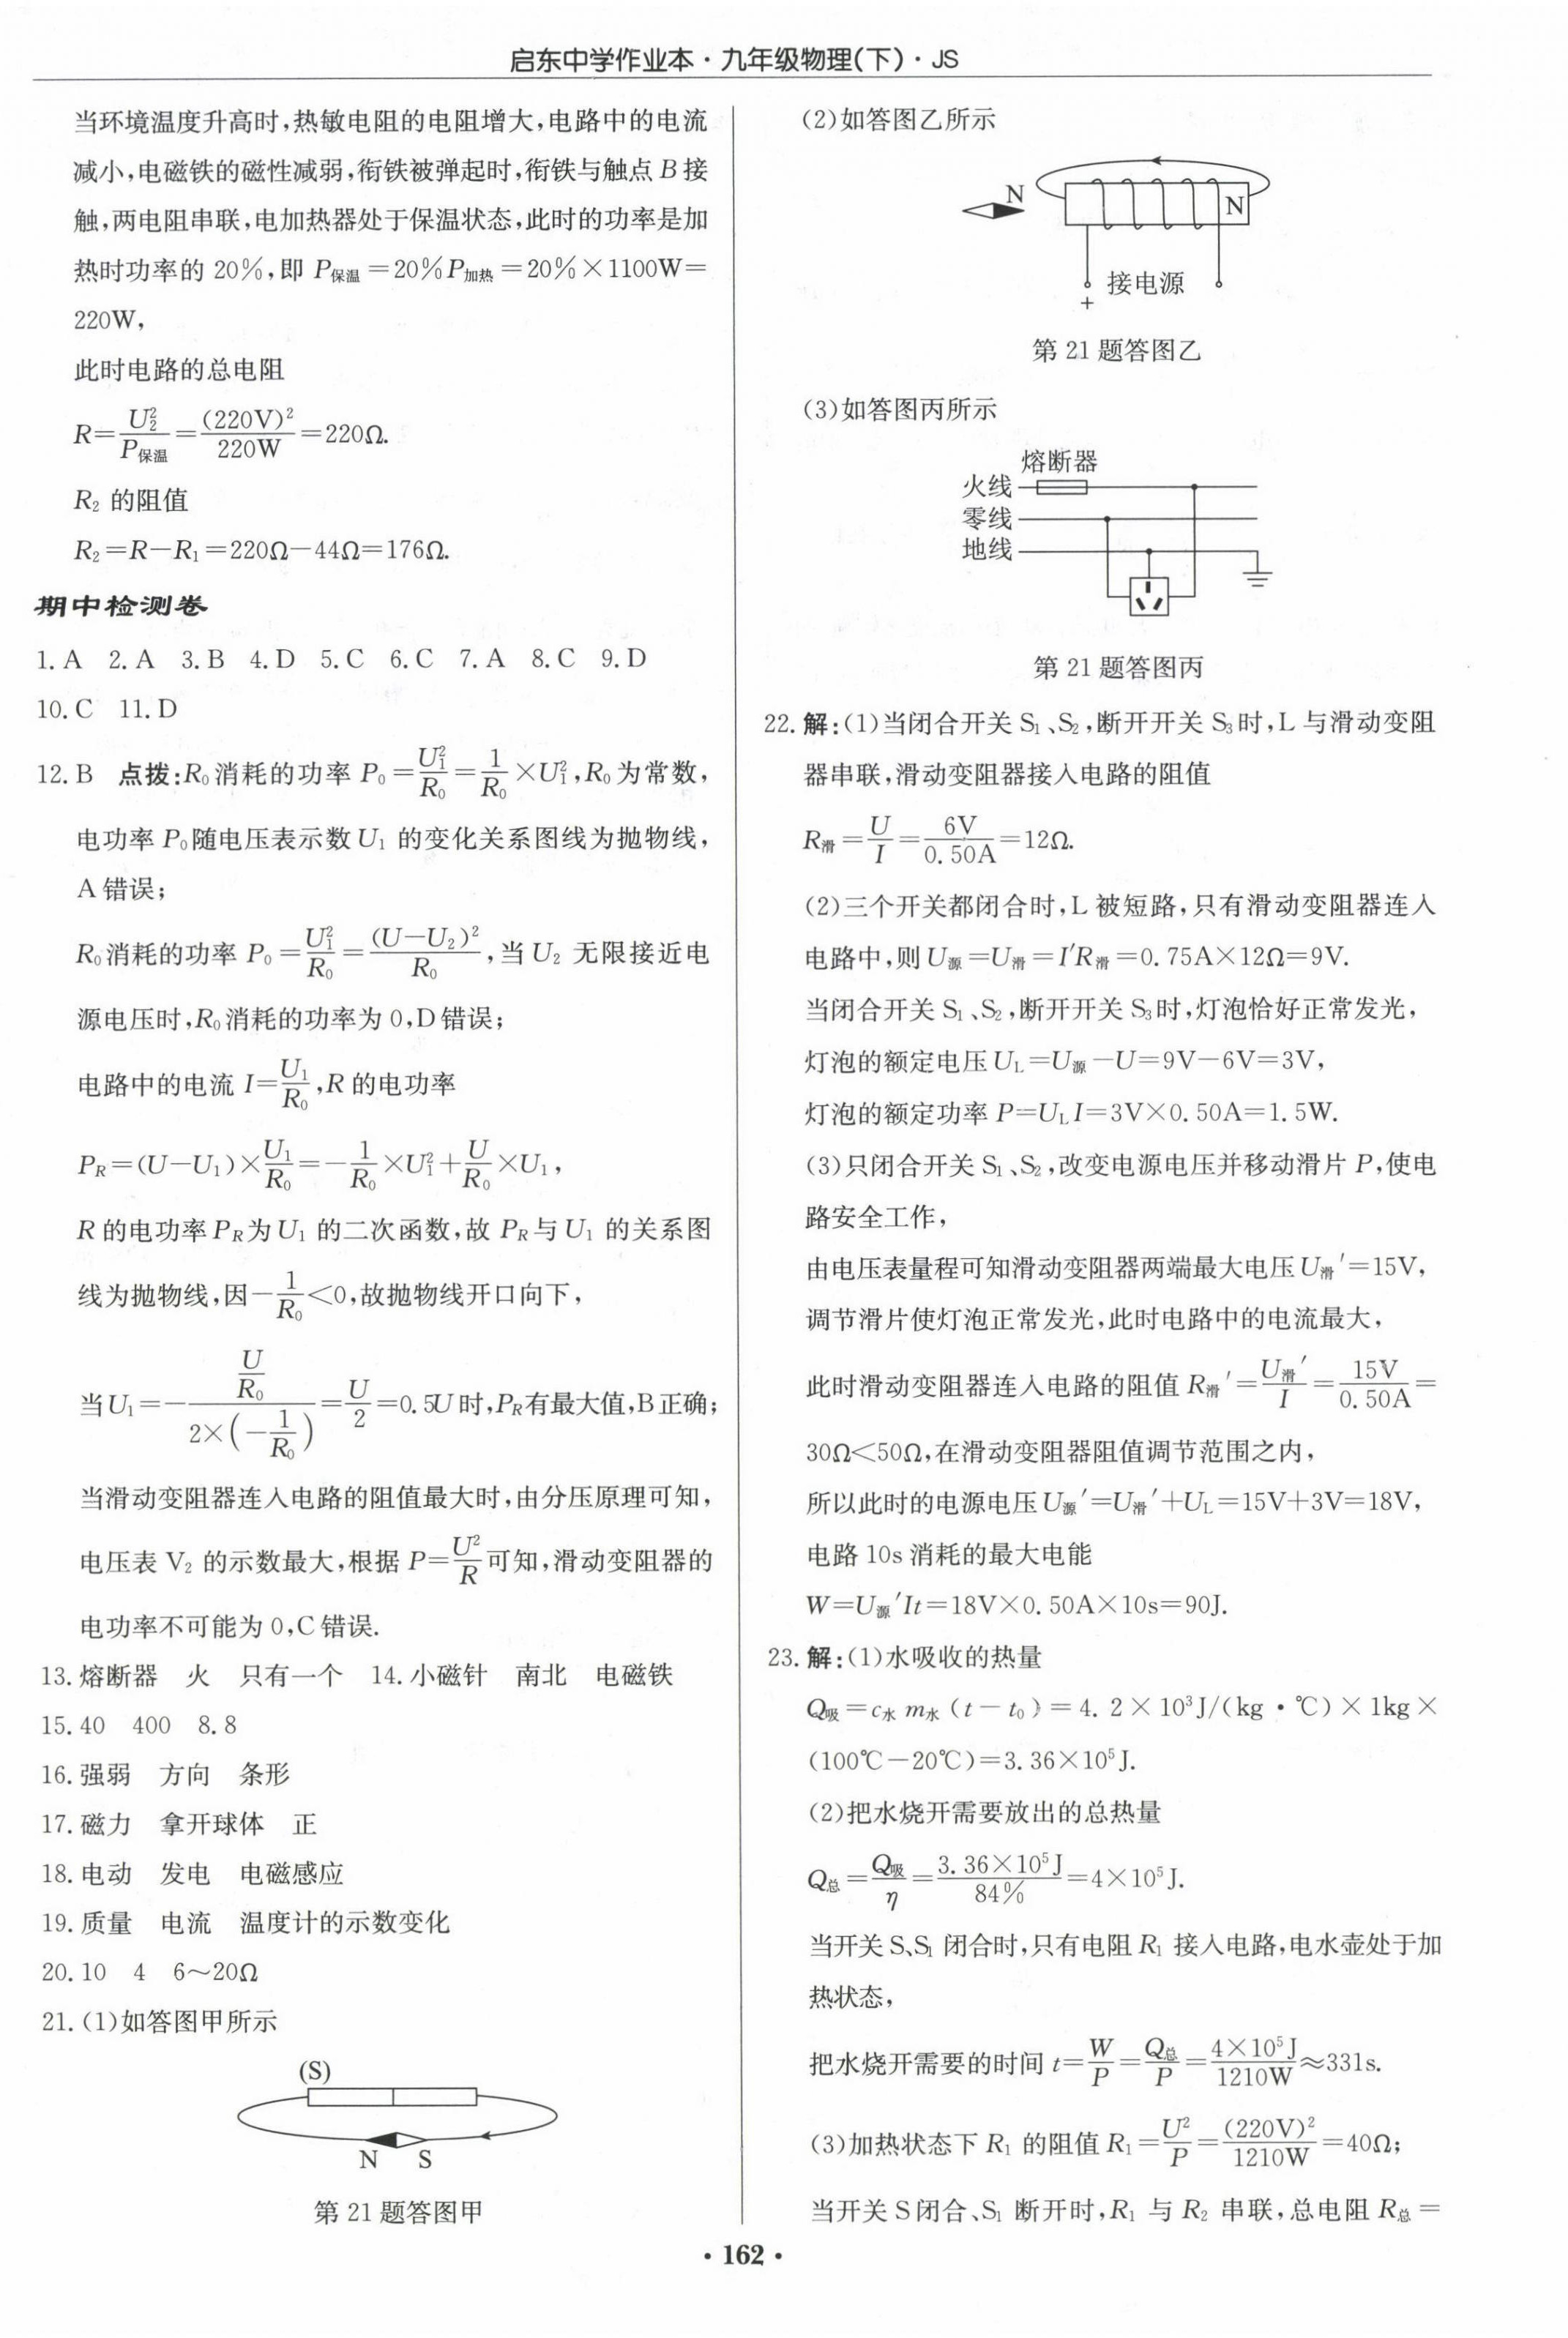 启东中学作业本·九年级物理(下)·JS
当环境温度升高时,热敏电阻的电阻增大,电路中的电流
减小,电磁铁的磁性减弱,衔铁被弹起时,衔铁与触点 B 接
触,两电阻串联,电加热器处于保温状态,此时的功率是加
热时功率的 20%,即 P保温=20%P加热=20%×1100W=
220W,
此时电路的总电阻
R=U₂²/P保温=(220V)²/220W=220Ω.
R₂ 的阻值
R₂=R-R₁=220Ω-44Ω=176Ω.
期中检测卷
1. A 2. A 3. B 4. D 5. C 6. C 7. A 8. C 9. D
10. C 11. D
12. B 点拨:R₀消耗的功率 P₀=U₁²/R₀=1/R₀×U₁²,R₀为常数,
电功率 P₀随电压表示数 U₁ 的变化关系图线为抛物线,
A 错误;
R₀消耗的功率 P₀=U₁²/R₀=(U-U₂)²/R₀,当 U₂ 无限接近电
源电压时,R₀消耗的功率为 0,D 错误;
电路中的电流 I=U₁/R₀,R 的电功率
P_R=(U-U₁)×U₁/R₀=-1/R₀×U₁²+U/R₀×U₁,
R 的电功率 P_R为 U₁ 的二次函数,故 P_R与 U₁ 的关系图
线为抛物线,因-1/R₀<0,故抛物线开口向下,
当 U₁=-(U/R₀)/(2×(-1/R₀))=U/2=0.5U 时,P_R有最大值,B 正确;
当滑动变阻器连入电路的阻值最大时,由分压原理可知,
电压表 V₂ 的示数最大,根据 P=U²/R可知,滑动变阻器的
电功率不可能为 0,C 错误.
13. 熔断器 火 只有一个 14. 小磁针 南北 电磁铁
15. 40 400 8.8
16. 强弱 方向 条形
17. 磁力 拿开球体 正
18. 电动 发电 电磁感应
19. 质量 电流 温度计的示数变化
20. 10 4 6~20Ω
21. (1)如答图甲所示
(S)
N S
第 21 题答图甲
(2)如答图乙所示
N
N
接电源
+
第 21 题答图乙
(3)如答图丙所示
熔断器
火线
零线
地线
第 21 题答图丙
22. 解:(1)当闭合开关 S₁、S₂,断开开关 S₃时,L 与滑动变阻
器串联,滑动变阻器接入电路的阻值
R滑=U/I=6V/0.50A=12Ω.
(2)三个开关都闭合时,L 被短路,只有滑动变阻器连入
电路中,则 U源=U滑=I′R滑=0.75A×12Ω=9V.
当闭合开关 S₁、S₂,断开开关 S₃时,灯泡恰好正常发光,
灯泡的额定电压 U_L=U源-U=9V-6V=3V,
灯泡的额定功率 P=U_L I=3V×0.50A=1.5W.
(3)只闭合开关 S₁、S₂,改变电源电压并移动滑片 P,使电
路安全工作,
由电压表量程可知滑动变阻器两端最大电压 U滑′=15V,
调节滑片使灯泡正常发光,此时电路中的电流最大,
此时滑动变阻器连入电路的阻值 R滑′=U滑′/I=15V/0.50A=
30Ω<50Ω,在滑动变阻器阻值调节范围之内,
所以此时的电源电压 U源′=U滑′+U_L=15V+3V=18V,
电路 10s 消耗的最大电能
W=U源′It=18V×0.50A×10s=90J.
23. 解:(1)水吸收的热量
Q吸=c水 m水(t-t₀)=4.2×10³J/(kg·℃)×1kg×
(100℃-20℃)=3.36×10⁵J.
(2)把水烧开需要放出的总热量
Q总=Q吸/η=3.36×10⁵J/84%=4×10⁵J.
当开关 S、S₁ 闭合时,只有电阻 R₁ 接入电路,电水壶处于加
热状态,
把水烧开需要的时间 t=W/P=Q总/P=4×10⁵J/1210W≈331s.
(3)加热状态下 R₁ 的阻值 R₁=U²/P=(220V)²/1210W=40Ω;
当开关 S 闭合、S₁ 断开时,R₁ 与 R₂ 串联,总电阻 R总=
·162·